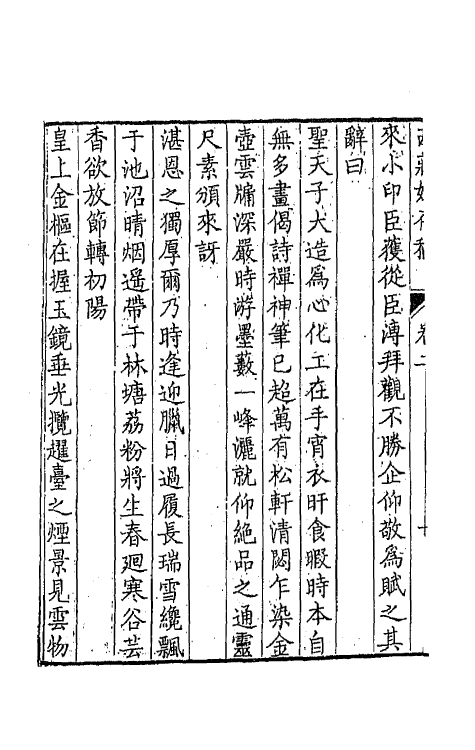 卷二
來小印臣獲從臣溥拜觀不勝企仰敬爲賦之其
辭曰
聖天子大造爲心化工在手宵衣旰食暇時本自
無多畫偈詩禪神筆已超萬有松軒清閟乍染金
壺雲牖深嚴時游墨藪一峰灑就仰絶品之通靈
尺素頒來訝
湛恩之獨厚爾乃時逢迎臘日過履長瑞雪纔飄
于池沼晴烟遥帶于林塘荔粉將生春迴寒谷芸
香欲放節轉初陽
皇上金樞在握玉鏡垂光攬趯臺之煙景見雲物